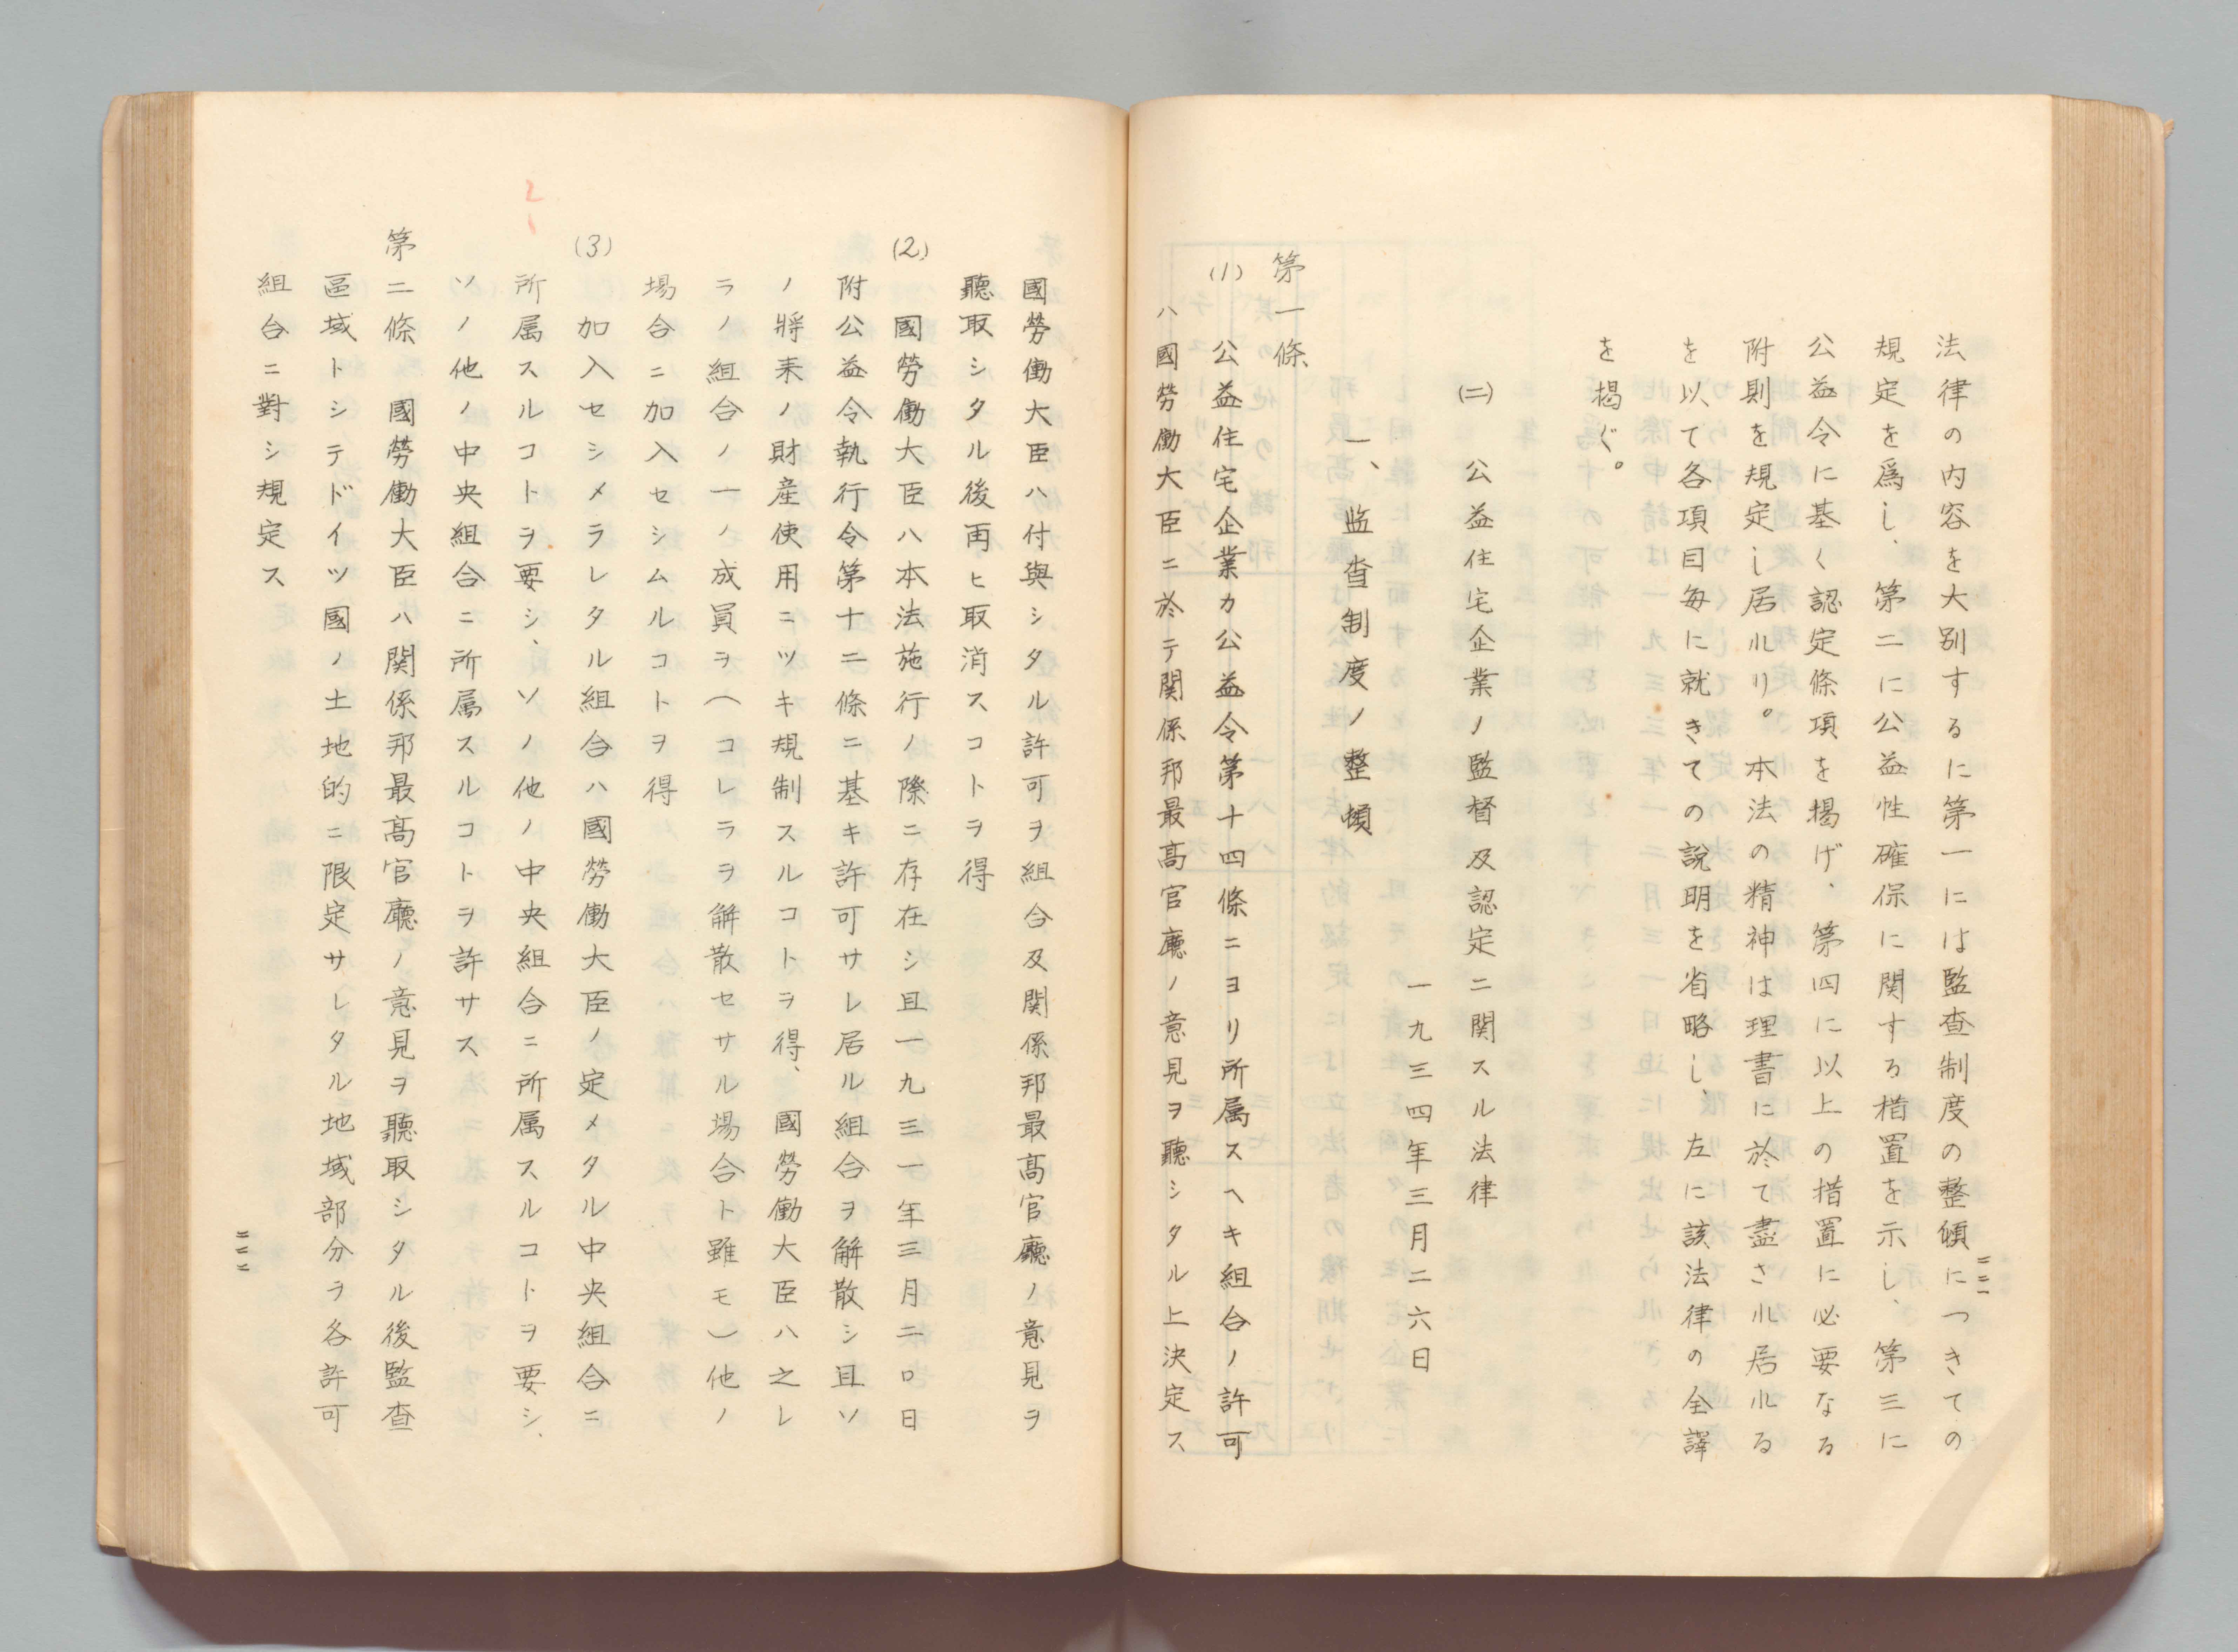 法律の内容を大別するに第一には監査制度の整頓につきての
規定を爲し、第二に公益性確保に関する措置を示し、第三に
公益令に基く認定條項を掲げ、第四に以上の措置に必要なる
附則を規定し居れり。本法の精神は理書に於て盡され居れる
を以て各項目毎に就きての說明を省略し、左に該法律の全譯
を掲ぐ。
(二) 公益住宅企業ノ監督及認定ニ関スル法律
一九三四年三月二六日
一、監査制度ノ整頓
第一條
(1) 公益住宅企業カ公益令第十四條ニヨリ所属スヘキ組合ノ許可
ハ國勞働大臣ニ於テ関係邦最高官廳ノ意見ヲ聽シタル上決定ス
二二一
國勞働大臣ハ付與シタル許可ヲ組合及関係邦最高官廳ノ意見ヲ
聽取シタル後再ヒ取消スコトヲ得
(2) 國勞働大臣ハ本法施行ノ際ニ存在シ且一九三一年三月二〇日
附公益令執行令第十二條ニ基キ許可サレ居ル組合ヲ解散シ且ソ
ノ將来ノ財産使用ニツキ規制スルコトヲ得、國勞働大臣ハ之レ
ラノ組合ノ一ノ成員ヲ(コレラヲ解散セサル場合ト雖モ)他ノ
場合ニ加入セシムルコトヲ得
(3) 加入セシメラレタル組合ハ國勞働大臣ノ定メタル中央組合ニ
所属スルコトヲ要シ、ソノ他ノ中央組合ニ所属スルコトヲ要シ、
ソノ他ノ中央組合ニ所属スルコトヲ許サス
第二條 國勞働大臣ハ関係邦最高官廳ノ意見ヲ聽取シタル後監査
區域トシテドイツ國ノ土地的ニ限定サレタル地域部分ヲ各許可
組合ニ對シ規定ス
二二二